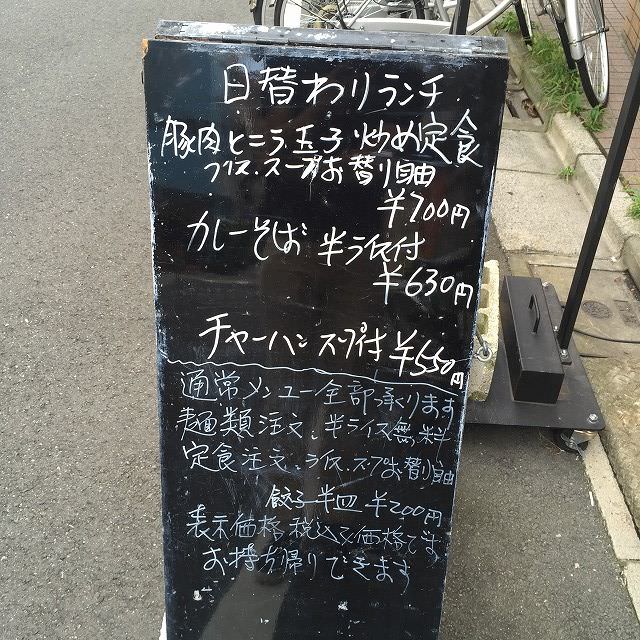 日替わりランチ
豚肉とニラ玉子炒め定食
ライス.スープお替り自由
¥700円
カレーそば 半ライス付
¥630円
チャーハン スープ付 ¥550円
通常メンュー全部承ります
麺類注文、半ライス無料
定食注文、ライス.スープお替り自由
餃子半皿 ¥200円
表示価格税込で価格です
お持ち帰りできます